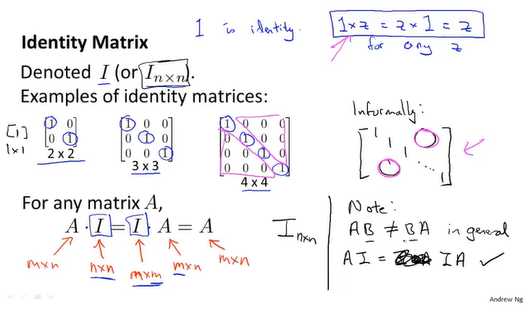 1 is identity.
1 × z = z × 1 = z
for any z
Identity Matrix
Denoted I (or I_{n×n}).
Examples of identity matrices:
[1]
1×1
1 0
0 1
2 x 2
1 0 0
0 1 0
0 0 1
3 x 3
1 0 0 0
0 1 0 0
0 0 1 0
0 0 0 1
4 x 4
Informally:
1
1
1
....
1
For any matrix A,
A · I = I · A = A
m×n n×n m×m m×n m×n
I_{n×n}
Note:
AB ≠ BA in general
AI = IA ✓
Andrew Ng